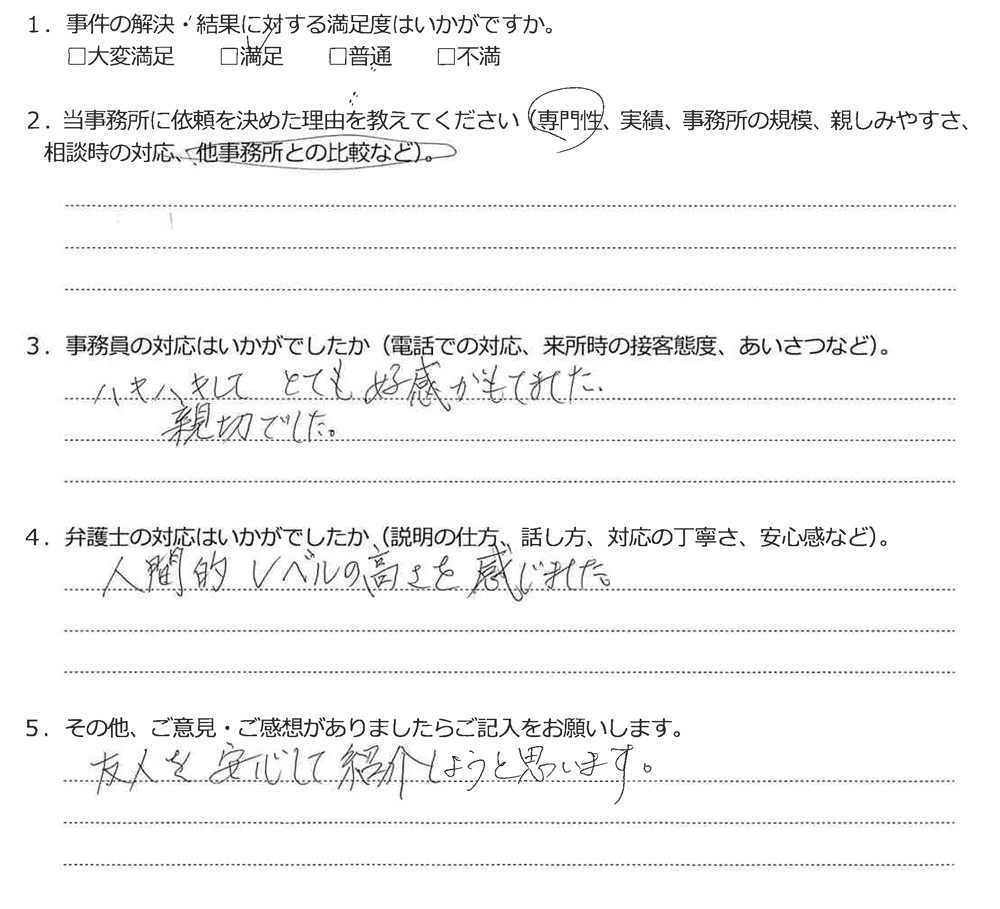 1．事件の解決・結果に対する満足度はいかがですか。
□大変満足　□満足　□普通　□不満
2．当事務所に依頼を決めた理由を教えてください（専門性、実績、事務所の規模、親しみやすさ、
相談時の対応、他事務所との比較など）。
3．事務員の対応はいかがでしたか（電話での対応、来所時の接客態度、あいさつなど）。
ハキハキして とても 好感がもてました。
親切でした。
4．弁護士の対応はいかがでしたか（説明の仕方、話し方、対応の丁寧さ、安心感など）。
人間的 レベルの高さを 感じました。
5．その他、ご意見・ご感想がありましたらご記入をお願いします。
友人を 安心して 紹介しようと思います。